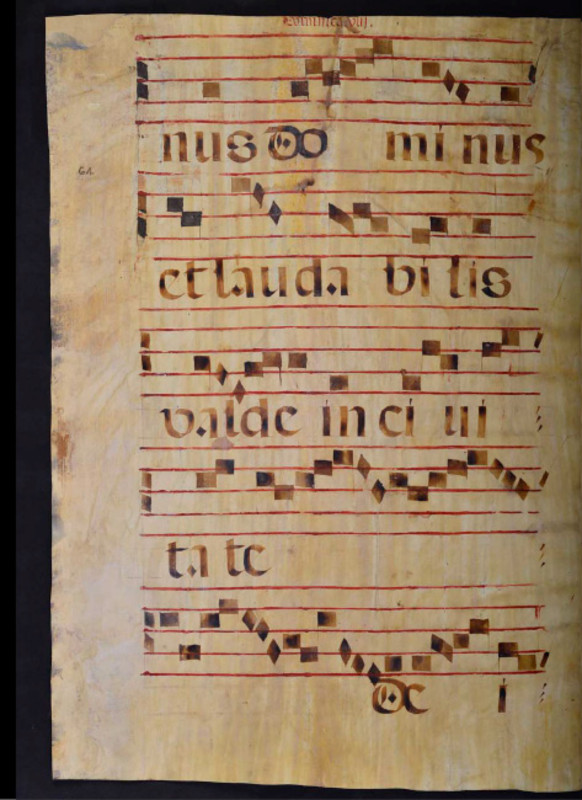 nus do mi nus
et lauda bi lis
valde in ci ui
ta te
De i